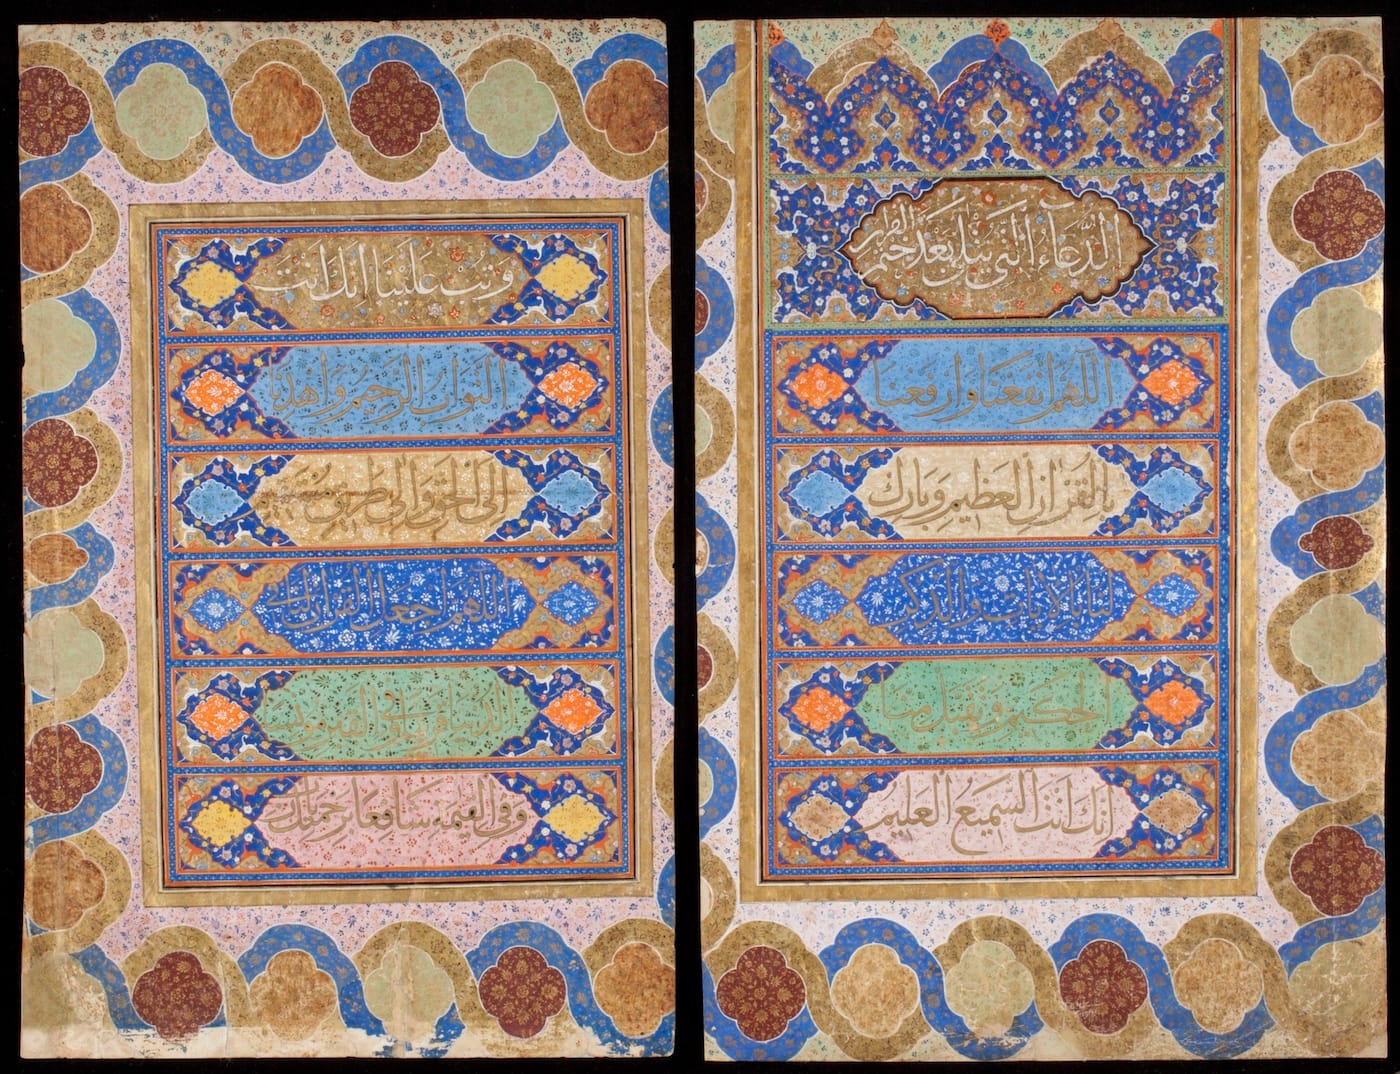 الدعاء التي يتلى بعد ختم
اللهم انفعنا وارفعنا
بالقران العظيم وبارك
لنا بالايات والذكر
الحكيم وتقبل منا
انك انت السميع العليم
وتب علينا انك انت
التواب الرحيم واهدنا
الى الحق والى طريق
اللهم اجعل القران لنا
الدنيا قرينا وفي القبر مونسا
وفي القيمة شافعا برحمتك